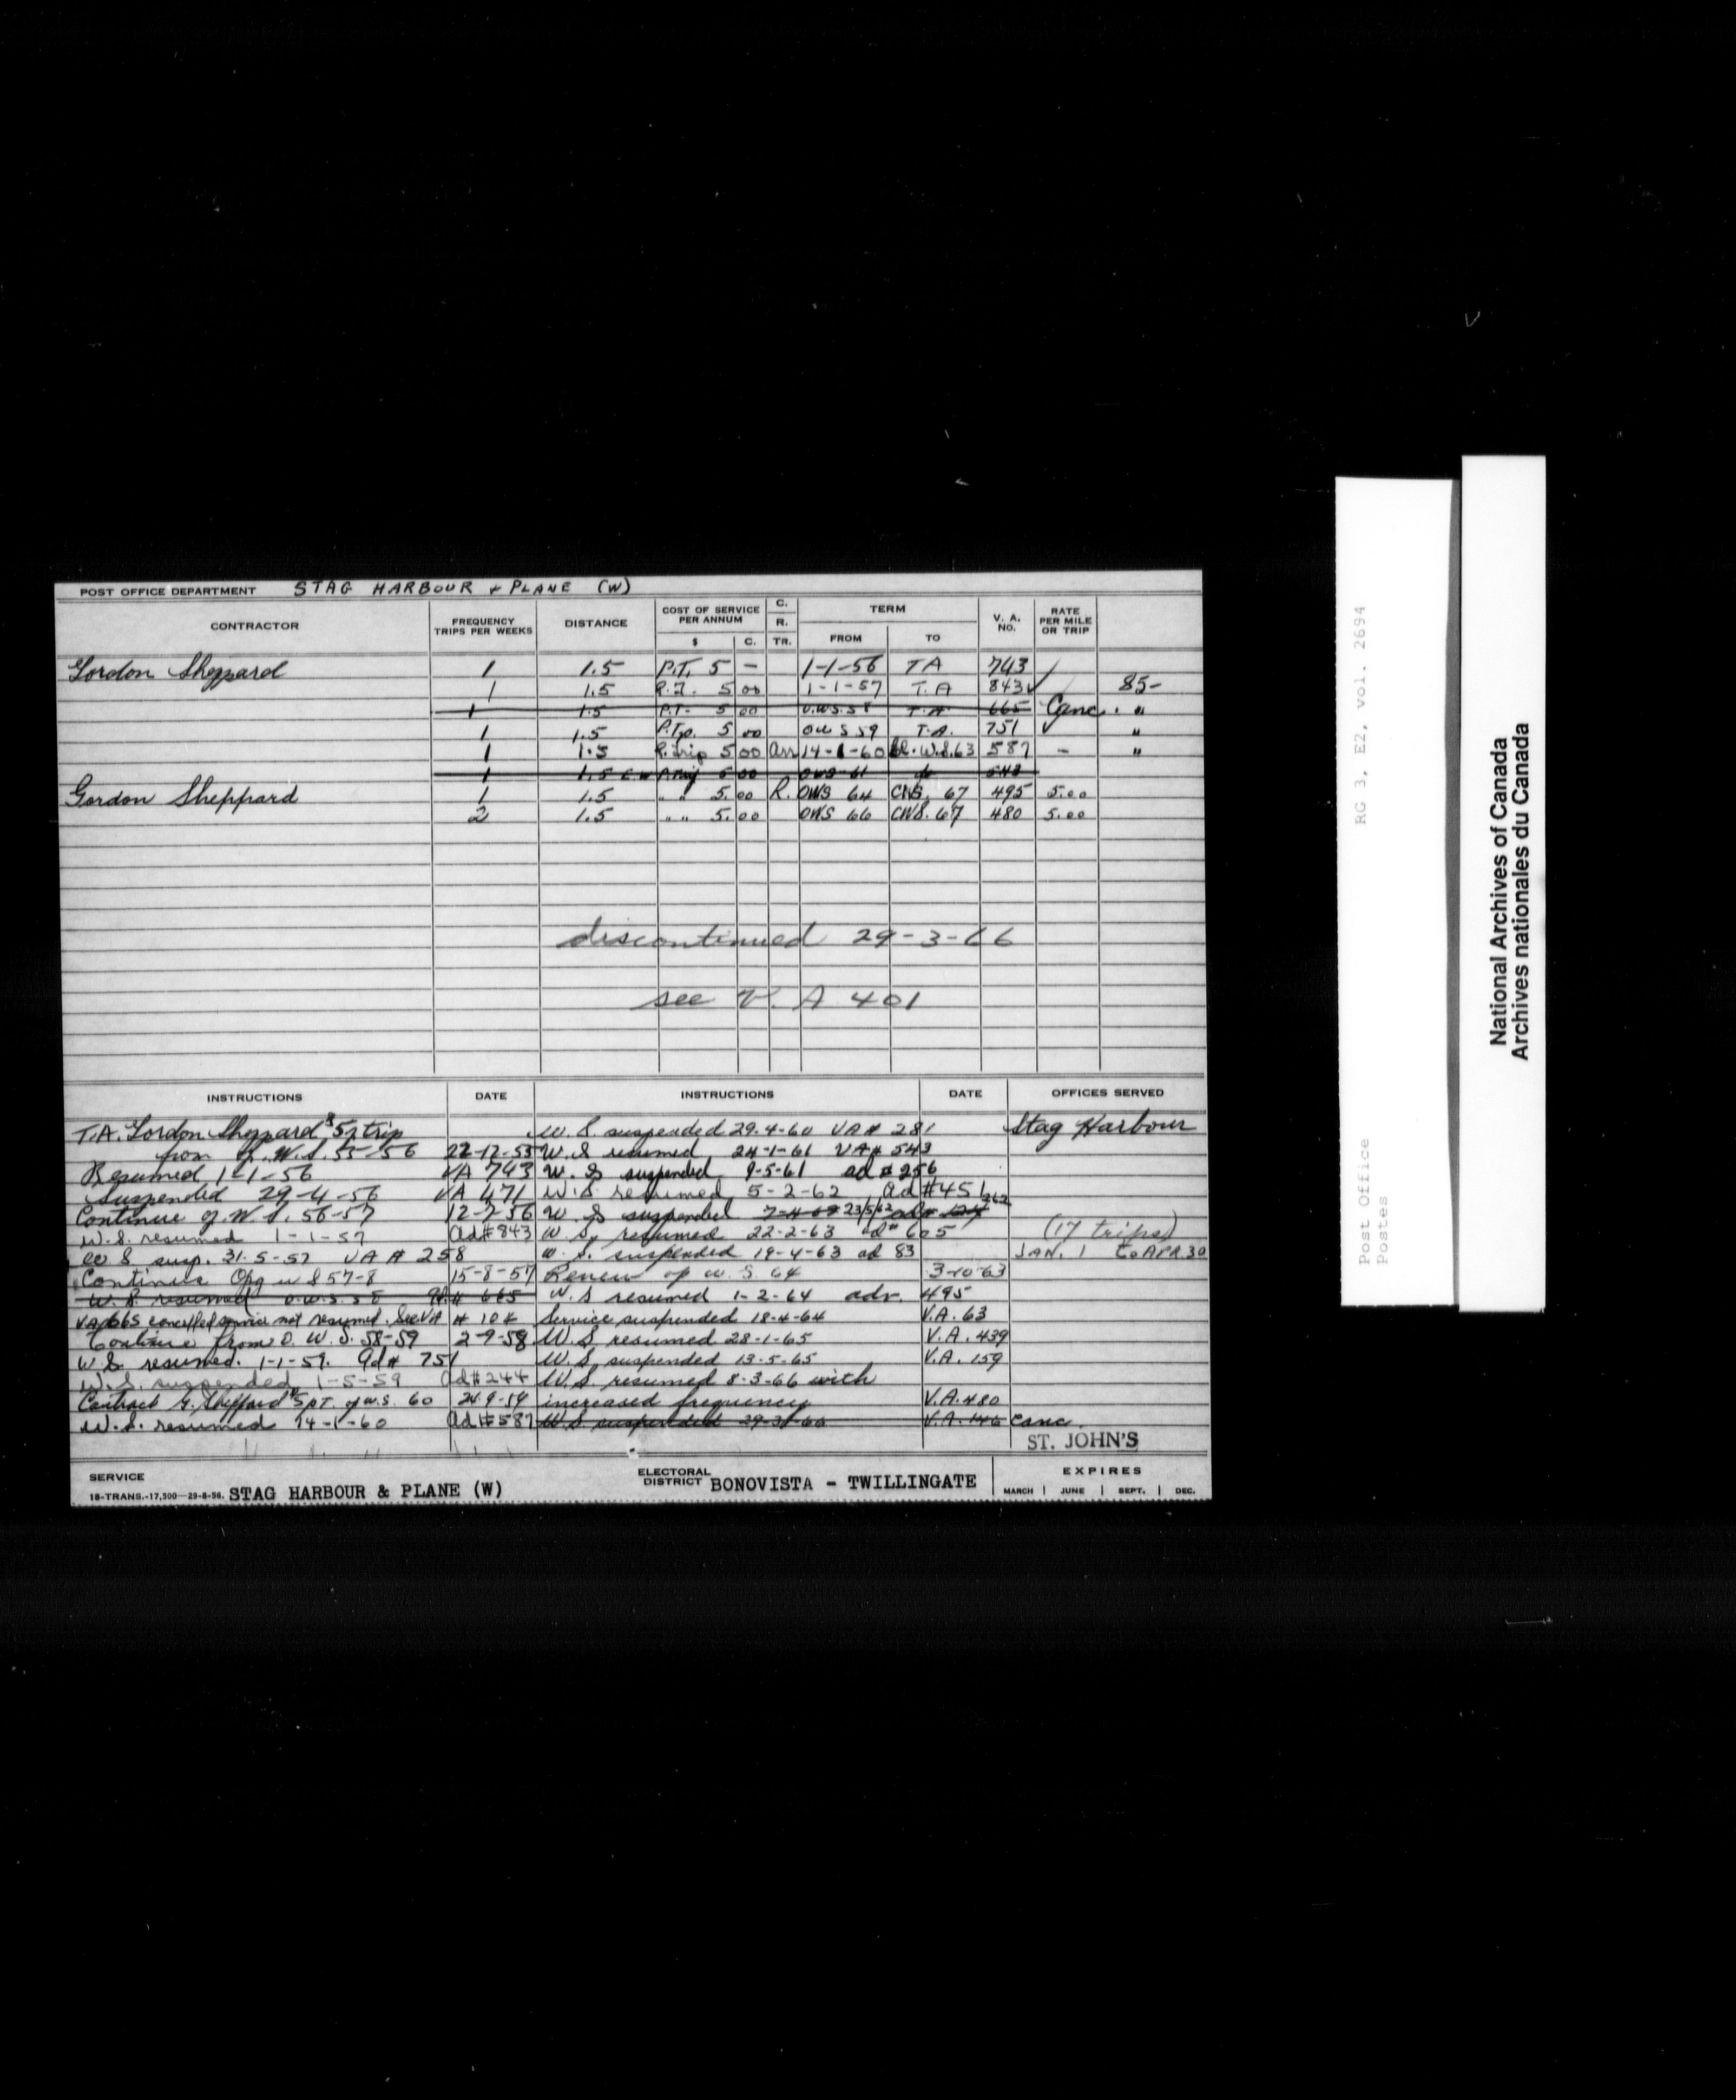 POST OFFICE DEPARTMENT STAG HARBOUR & PLANE (W)
CONTRACTOR FREQUENCY TRIPS PER WEEKS DISTANCE COST OF SERVICE PER ANNUM $ C. C. R. TR. TERM FROM TO V. A. NO. RATE PER MILE OR TRIP
Gordon Sheppard 1 1.5 P.T. 5 — 1-1-56 TA 743
1 1.5 P.T. 5 00 1-1-57 T.A 843 ✓ 85-
1 1.5 P.T- 5 00 O.W.S. 58 T.A. 665 Canc. "
1 1.5 P.Tp. 5 00 OWS 59 T.A. 751 "
1 1.5 P. trip 5 00 an 14-1-60 cl. W.S. 63 587 - "
1 1.5 5 00 OWS 61 do 543
Gordon Sheppard 1 1.5 " " 5.00 R. OWS 64 CWS. 67 495 5.00
2 1.5 " " 5.00 OWS 66 CWS. 67 480 5.00
discontinued 29-3-66
see V. A 401
INSTRUCTIONS DATE INSTRUCTIONS DATE OFFICES SERVED
T.A. Gordon Sheppard $5 trip W. S. suspended 29-4-60 VA# 281 Stag Harbour
from W.S. 55-56 22-12-55 W.S resumed 24-1-61 VA# 543
Resumed 1-1-56 VA 743 W. S suspended 9-5-61 ad # 256
Suspended 29-4-56 VA 471 W.S. resumed 5-2-62 Ad #451
Continue of W.S. 56-57 12-7-56 W S suspended 23/5/62 262
W.S. resumed 1-1-57 Ad#843 W S, resumed 22-2-63 ad# 605 (17 trips)
W S susp. 31-5-57 VA # 258 W. S. suspended 19-4-63 ad 83 JAN. 1 to APR. 30
Continue Opg w S 57-8 15-8-57 Renew op w. S. 64 3-10-63
W. S. resumed O.W.S. 58 # 665 W. S resumed 1-2-64 adv. 495
VA 665 cancelled service not resumed. See VA # 104 Service suspended 18-4-64 V.A. 63
Continue from O. W. S. 58-59 2-9-58 W. S resumed 28-1-65 V.A. 439
W S. resumed. 1-1-59. Ad# 751 W. S. suspended 13-5-65 V.A. 159
W. S. suspended 1-5-59 Ad#244 W.S. resumed 8-3-66 with
Contract G. Sheppard $5 p.T. of w.s. 60 24-9-59 increased frequency V.A. 480
W.S. resumed 14-1-60 Ad#587 W.S. suspended 29-3-66 V.A. 146 Canc.
ST. JOHN'S
SERVICE ELECTORAL DISTRICT BONOVISTA - TWILLINGATE EXPIRES
18-TRANS.-17,500—29-8-56. STAG HARBOUR & PLANE (W) MARCH | JUNE | SEPT. | DEC.
RG 3, E2, vol. 2694
Post Office
Postes
National Archives of Canada
Archives nationales du Canada